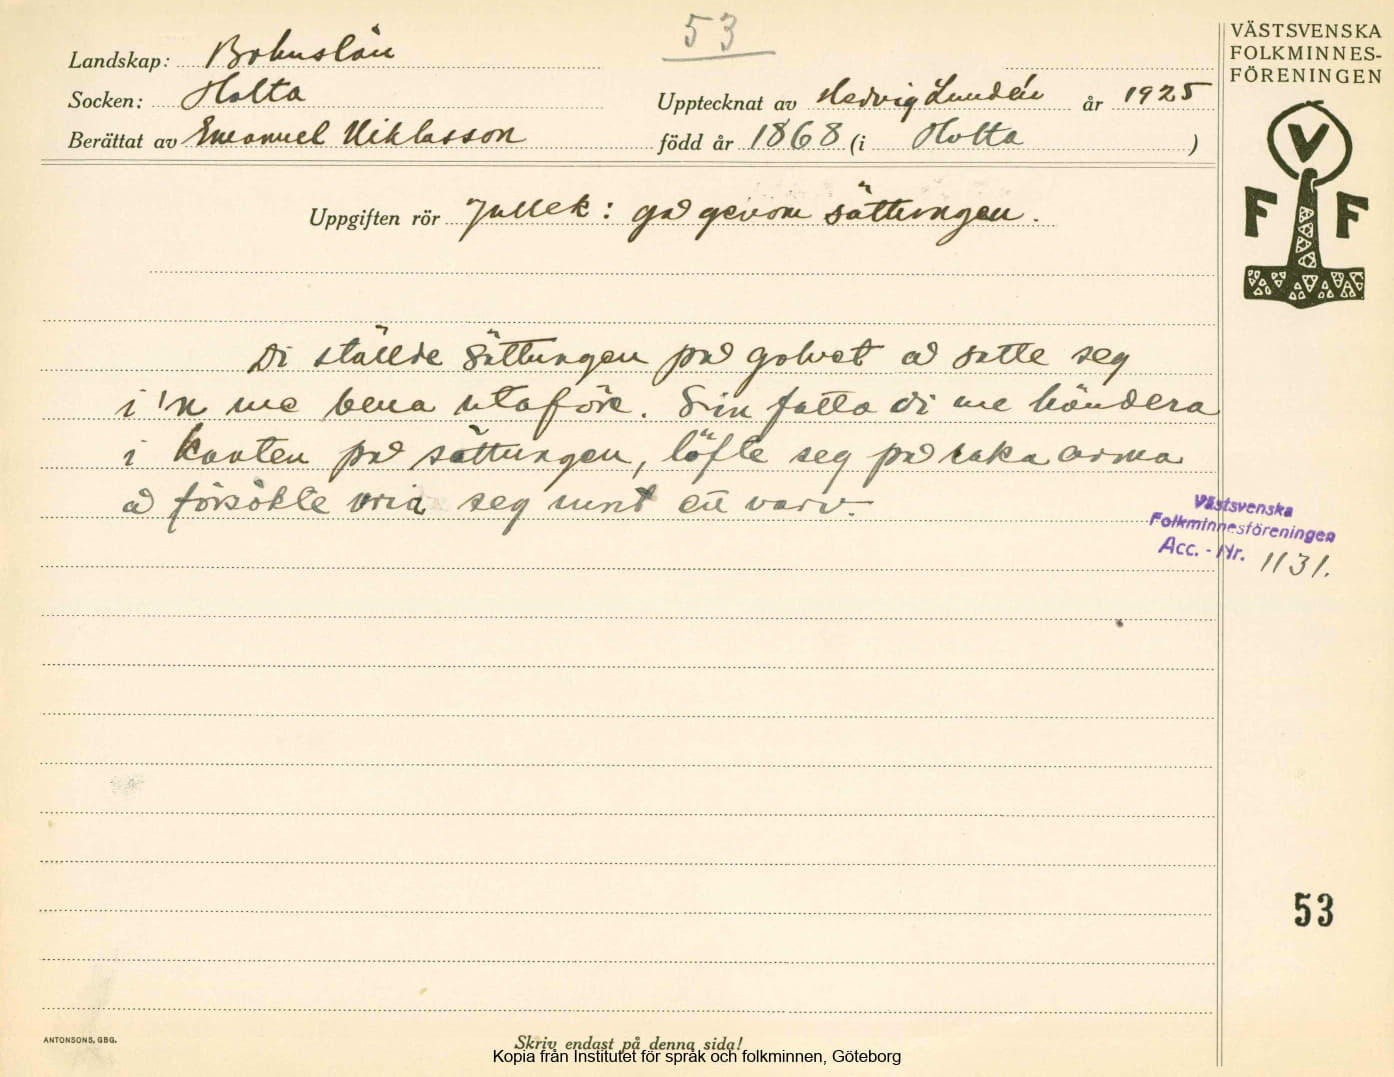 53
VÄSTSVENSKA
FOLKMINNES-
FÖRENINGEN
V
F F
Landskap: Bohuslän
Socken: Holta
Upptecknat av Hedvig Lundén år 1925
Berättat av Emanuel Niklasson
född år 1868 (i Holta )
Uppgiften rör Jullek: gå genom sättungen.
Di ställde sättungen på golvet å satte seg
i 'n me bena utaför. Sin fatta di me händera
i kanten på sättungen, löfte seg på raka arma
å försökte vria seg runt ett varv.
Västsvenska
Folkminnesföreningen
Acc. - Nr. 1131.
53
ANTONSONS, GBG.
Skriv endast på denna sida!
Kopia från Institutet för språk och folkminnen, Göteborg